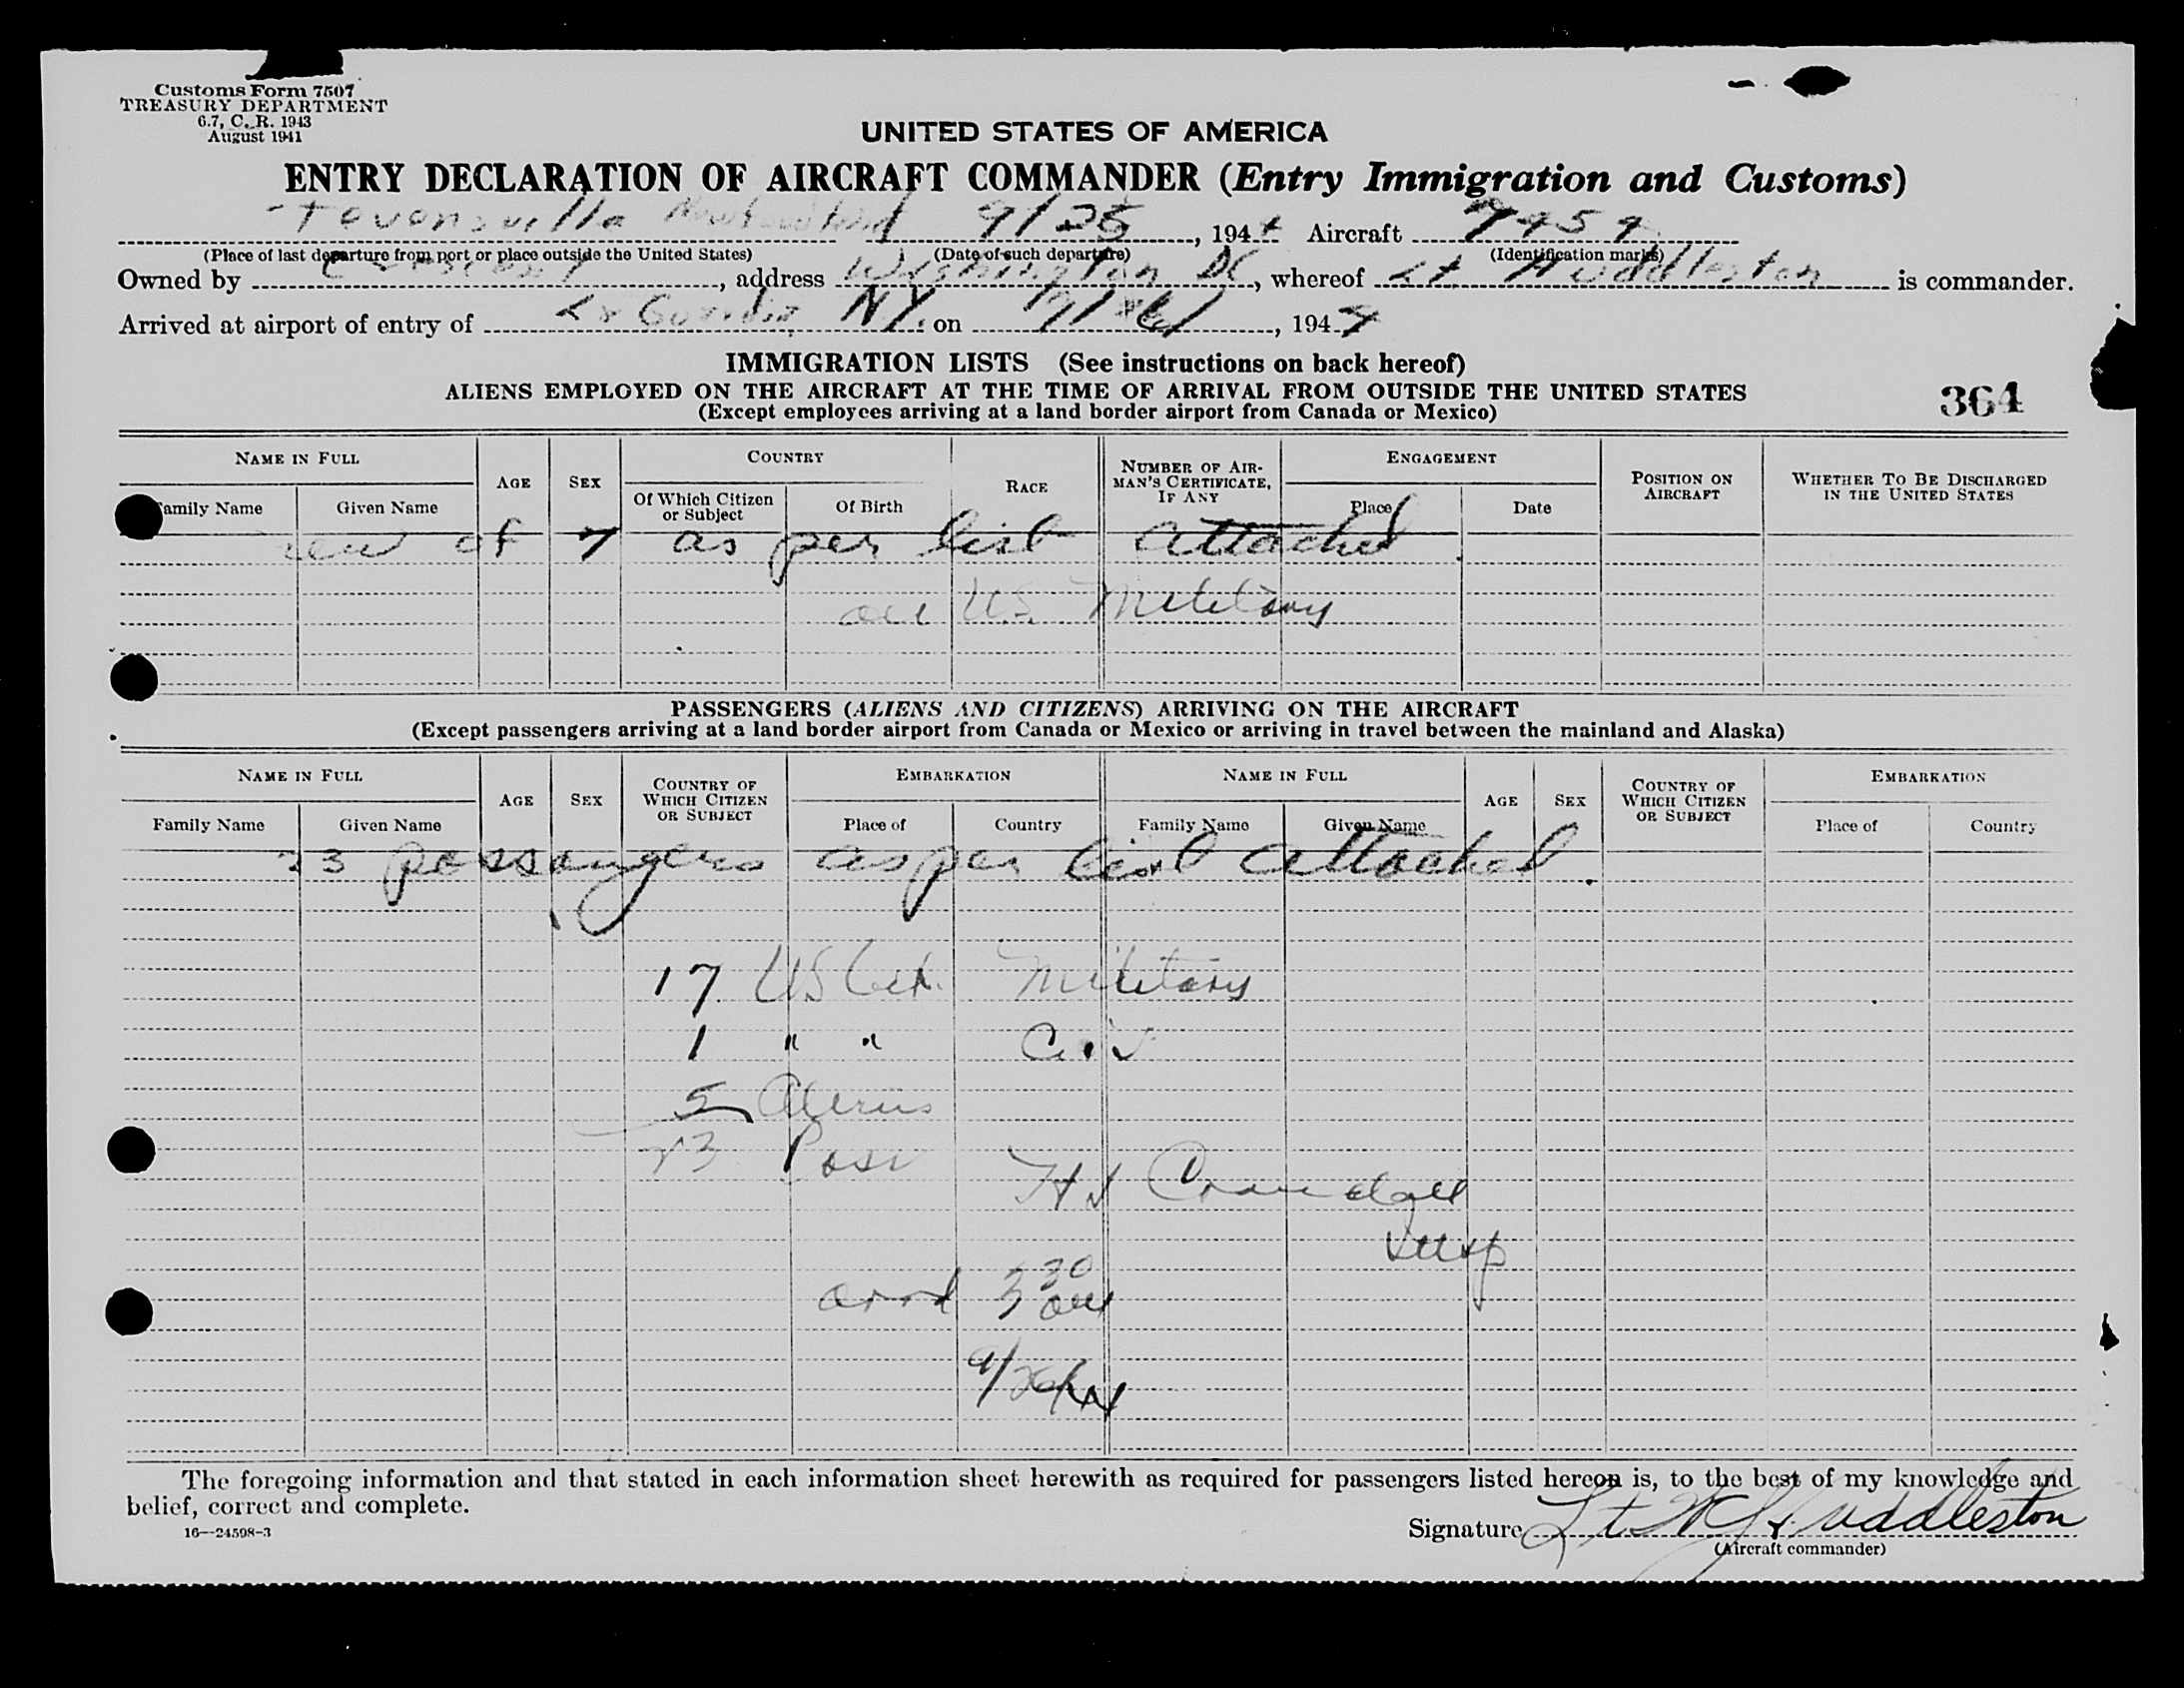 Customs Form 7507
TREASURY DEPARTMENT
6.7, C. R. 1943
August 1941
UNITED STATES OF AMERICA
ENTRY DECLARATION OF AIRCRAFT COMMANDER (Entry Immigration and Customs)
9/25, 194 Aircraft
(Place of last departure from port or place outside the United States) (Date of such departure) (Identification marks)
Owned by , address Washington DC, whereof Lt Huddleston is commander.
Arrived at airport of entry of La Guardia, N.Y. on , 194
IMMIGRATION LISTS (See instructions on back hereof)
ALIENS EMPLOYED ON THE AIRCRAFT AT THE TIME OF ARRIVAL FROM OUTSIDE THE UNITED STATES
(Except employees arriving at a land border airport from Canada or Mexico)
364
NAME IN FULL AGE SEX COUNTRY RACE NUMBER OF AIRMAN'S CERTIFICATE, IF ANY ENGAGEMENT POSITION ON AIRCRAFT WHETHER TO BE DISCHARGED IN THE UNITED STATES
Family Name Given Name Of Which Citizen or Subject Of Birth Place Date
crew of 7 as per list attached
all U.S. Military
PASSENGERS (ALIENS AND CITIZENS) ARRIVING ON THE AIRCRAFT
(Except passengers arriving at a land border airport from Canada or Mexico or arriving in travel between the mainland and Alaska)
NAME IN FULL AGE SEX COUNTRY OF WHICH CITIZEN OR SUBJECT EMBARKATION NAME IN FULL AGE SEX COUNTRY OF WHICH CITIZEN OR SUBJECT EMBARKATION
Family Name Given Name Place of Country Family Name Given Name Place of Country
23 passengers as per list attached.
17 US Cit. Military
1 " " Civ
5 Aliens
23 Pass
H J Crandall
Insp
arrd 3 30 am
9/26/44
The foregoing information and that stated in each information sheet herewith as required for passengers listed hereon is, to the best of my knowledge and
belief, correct and complete.
16—24598-3
Signature Lt Huddleston
(Aircraft commander)